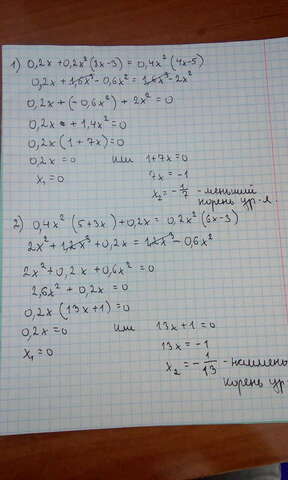 1) 0,2x + 0,2x² (8x-3) = 0,4x² (4x-5)
0,2x + 1,6x³ - 0,6x² = 1,6x³ - 2x²
0,2x + (-0,6x²) + 2x² = 0
0,2x + 1,4x² = 0
0,2x (1 + 7x) = 0
0,2x = 0 или 1+7x = 0
x₁ = 0 7x = -1
x₂ = -1/7 - меньший
корень ур-я
2) 0,4x² (5+3x) + 0,2x = 0,2x² (6x-3)
2x² + 1,2x³ + 0,2x = 1,2x³ - 0,6x²
2x² + 0,2x + 0,6x² = 0
2,6x² + 0,2x = 0
0,2x (13x+1) = 0
0,2x = 0 или 13x + 1 = 0
x₁ = 0 13x = -1
x₂ = -1/13 - наимень
корень ур